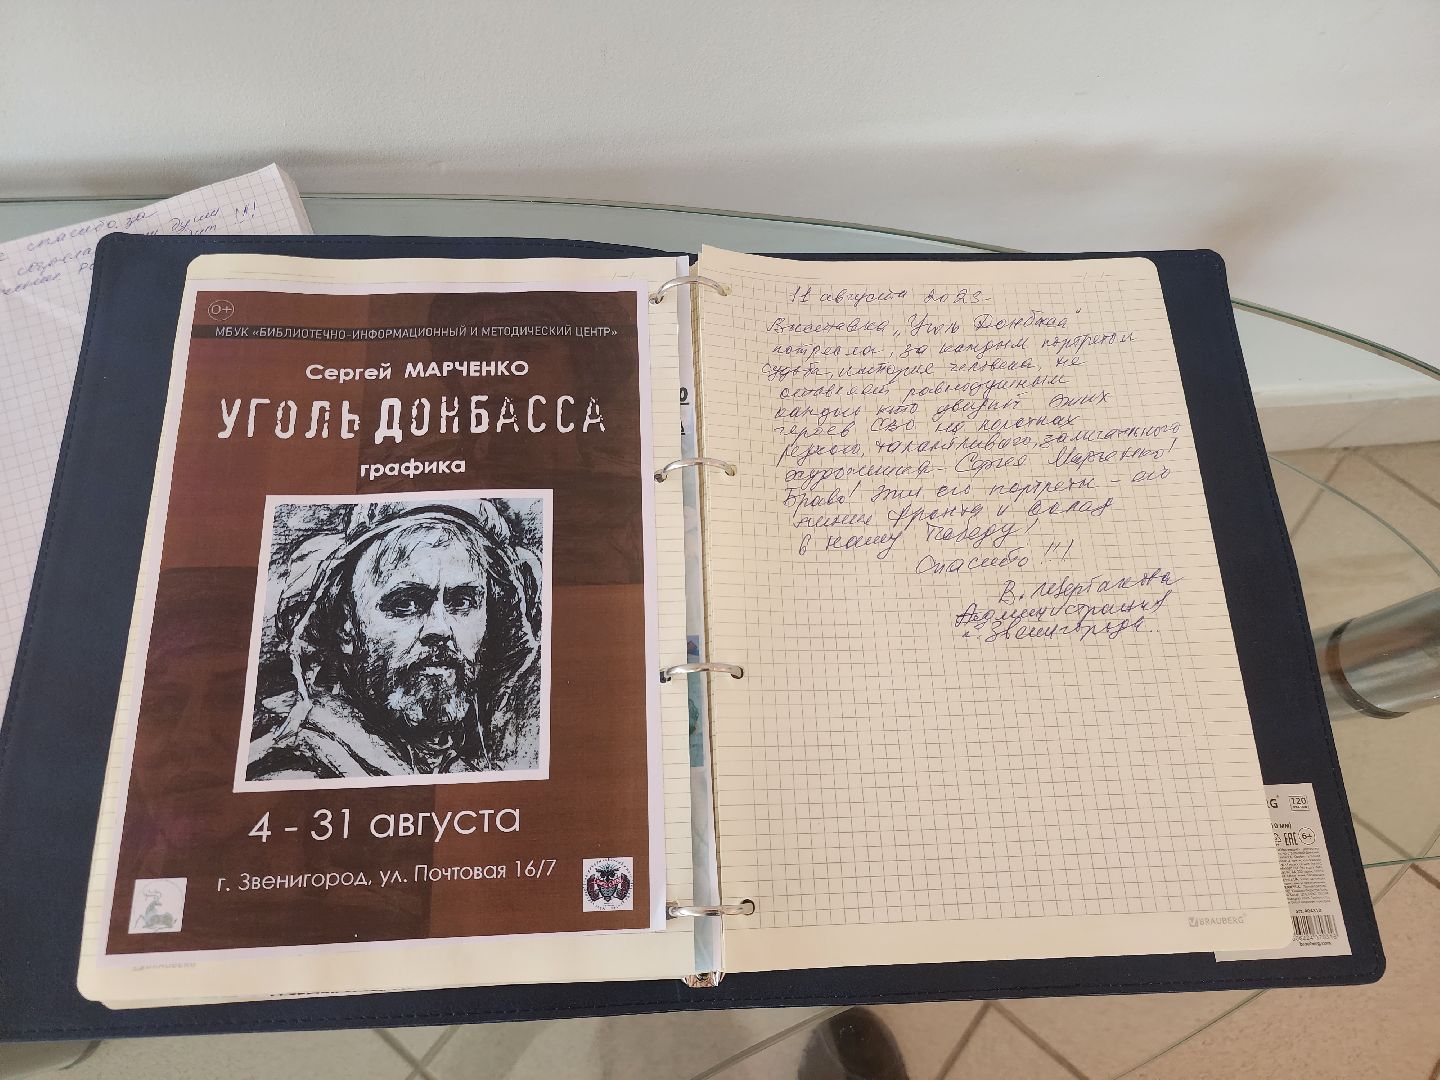 спасибо за
души
!!!
0+
МБУК «БИБЛИОТЕЧНО-ИНФОРМАЦИОННЫЙ И МЕТОДИЧЕСКИЙ ЦЕНТР»
Сергей МАРЧЕНКО
УГОЛЬ ДОНБАССА
графика
4 - 31 августа
г. Звенигород, ул. Почтовая 16/7
BRAUBERG
11 августа 2023.
Выставка „Уголь Донбасса"
потрясла, за каждым портретом
судьба, история человека, не
оставляет равнодушным
каждый кто увидит этих
героев СВО на полотнах
редкого, талантливого,
художника - Сергея Марченко!
Браво! Эти его портреты - его
линии фронта и вклад
в нашу Победу!
Спасибо!!!
В. Щербакова
Администрация
г. Звенигорода.
BRAUBERG
120
6+
EAC
brauberg.com